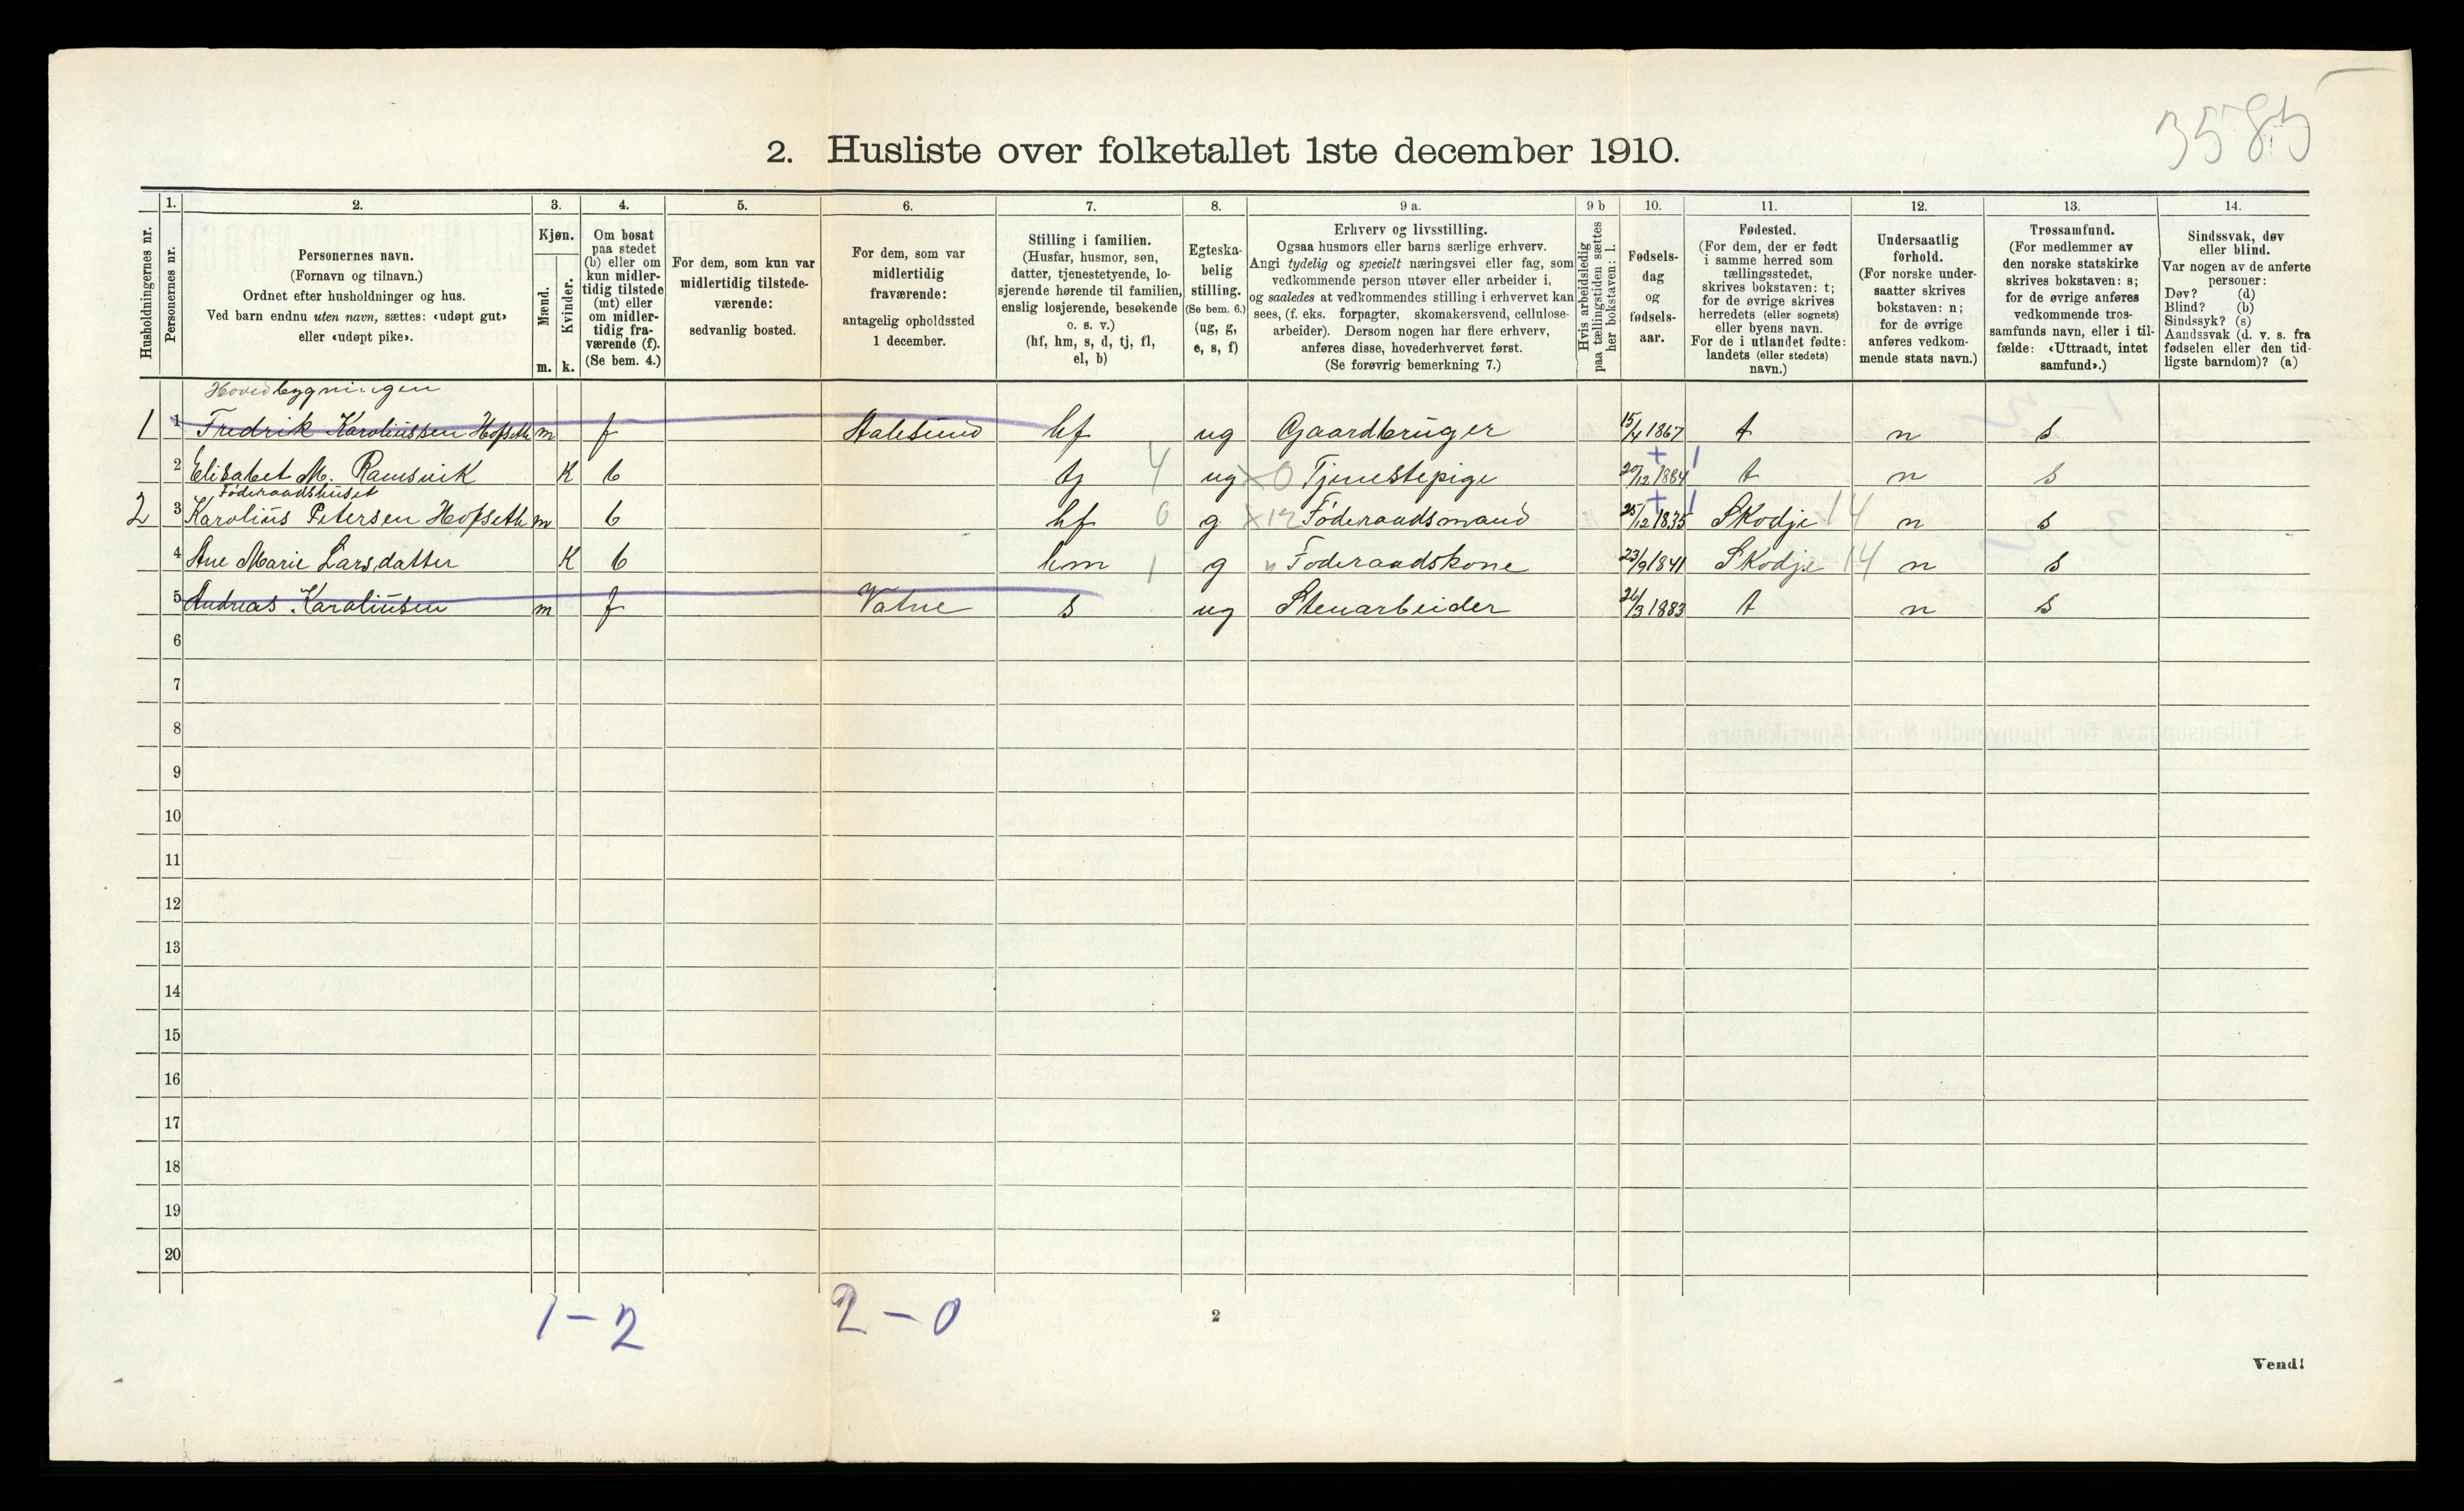 3585
2. Husliste over folketallet 1ste december 1910.
1. 2. 3. 4. 5. 6. 7. 8. 9 a. 9 b 10. 11. 12. 13. 14.
Husholdningernes nr.
Personernes nr.
Personernes navn.
(Fornavn og tilnavn.)
Ordnet efter husholdninger og hus.
Ved barn endnu uten navn, sættes: «udøpt gut»
eller «udøpt pike».
Kjøn.
Mænd.
Kvinder.
m. k.
Om bosat
paa stedet
(b) eller om
kun midler-
tidig tilstede
(mt) eller
om midler-
tidig fra-
værende (f).
(Se bem. 4.)
For dem, som kun var
midlertidig tilstede-
værende:
sedvanlig bosted.
For dem, som var
midlertidig
fraværende:
antagelig opholdssted
1 december.
Stilling i familien.
(Husfar, husmor, søn,
datter, tjenestetyende, lo-
sjerende hørende til familien,
enslig losjerende, besøkende
o. s. v.)
(hf, hm, s, d, tj, fl,
el, b)
Egteska-
belig
stilling.
(Se bem. 6.)
(ug, g,
e, s, f)
Erhverv og livsstilling.
Ogsaa husmors eller barns særlige erhverv.
Angi tydelig og specielt næringsvei eller fag, som
vedkommende person utøver eller arbeider i,
og saaledes at vedkommendes stilling i erhvervet kan
sees, (f. eks. forpagter, skomakersvend, cellulose-
arbeider). Dersom nogen har flere erhverv,
anføres disse, hovederhvervet først.
(Se forøvrig bemerkning 7.)
Hvis arbeidsledig
paa tællingstiden sættes
her bokstaven: l.
Fødsels-
dag
og
fødsels-
aar.
Fødested.
(For dem, der er født
i samme herred som
tællingsstedet,
skrives bokstaven: t;
for de øvrige skrives
herredets (eller sognets)
eller byens navn.
For de i utlandet fødte:
landets (eller stedets)
navn.)
Undersaatlig
forhold.
(For norske under-
saatter skrives
bokstaven: n;
for de øvrige
anføres vedkom-
mende stats navn.)
Trossamfund.
(For medlemmer av
den norske statskirke
skrives bokstaven: s;
for de øvrige anføres
vedkommende tros-
samfunds navn, eller i til-
fælde: «Uttraadt, intet
samfund».)
Sindssvak, døv
eller blind.
Var nogen av de anførte
personer:
Døv? (d)
Blind? (b)
Sindssyk? (s)
Aandssvak (d. v. s. fra
fødselen eller den tid-
ligste barndom)? (a)
Hovedbygningen
1 1 Fredrik Karoliussen Hofseth m f Aalesund hf ug Gaardbruger 15/4 1867 t n s
2 Elisabet M. Ramsvik K b tj 4 ug x0 Tjenestepige 20/12 1884 + 1 t n s
Føderaadshuset
2 3 Karolius Petersen Hofseth m b hf 0 g x12 Føderaadsmand 25/12 1835 + 1 Skodje 14 n s
4 Ane Marie Larsdatter K b hm 1 g " Føderaadskone 23/9 1841 Skodje 14 n s
5 Andreas Karoliusen m f Vatne s ug Stenarbeider 26/3 1883 t n s
6
7
8
9
10
11
12
13
14
15
16
17
18
19
20
1 - 2 2 - 0
2
Vend!